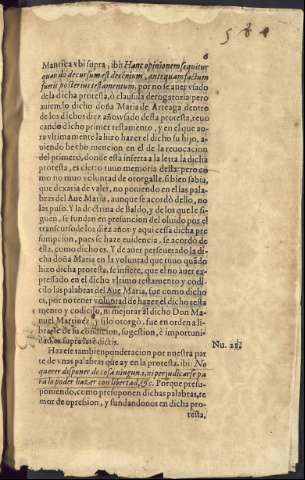 584
6
Mantica vbi supra, ibi: Hanc opinionem sequitur
quando decursum est decēnium, antequam factum
fuerit posterius testamentum, por no se auer vsado
de la dicha protesta, ò clausula derogatoria pero
auiendo dicho doña Maria de Arteaga dentro
de los dichos diez años vsado desta protesta, reuo
cando dicho primer testamento, y en el que ao-
ra vltimamente la hizo hazer el dicho su hijo, a-
uiendo hecho mencion en el de la reuocacion
del primero, donde està inserta a la letra la dicha
protesta, es cierto tuuo memoria della: pero co
mo no tuuo voluntad de otorgalle, si bien sabia,
que dexaria de valer, no poniendo en el las pala-
bras del Aue Maria, aunque se acordò dello, no
las puso. Y la doctrina de Baldo, y de los que le si-
guen, se fundan en presuncion del oluido por el
transcurso de los diez años y aqui cessa dicha pre
sumpcion, pues se haze euidencia, se acordò de
esta, como dicho es. Y de auer perseuerado la di-
cha doña Maria en la voluntad que tuuo quādo
hizo dicha protesta, se infiere, que el no auer ex-
pressado en el dicho vltimo testamento y codi-
cilo las palabras del Aue Maria, fue como dicho
es, por no tener voluntad de hazer el dicho testa
mento y codicilo, ni mejorar al dicho Don Ma-
nuel Martinez, y si lo otorgò, fue en orden a li-
brarse de su condicion, sugestion, è importuni-
dad os supra latè dictis.
Hazese tambien ponderacion por nuestra par
te de vnas palabras que ay en la protesta. ibi: No
querer disponer de cosa ninguna, ni perjudicarse pa
ra lo poder hazer con libertad, &c. Porque presu-
poniendo, como presuponen dichas palabras, te
mor de opresion, y fundandonos en dicha pro-
testa,
Nu. 28.